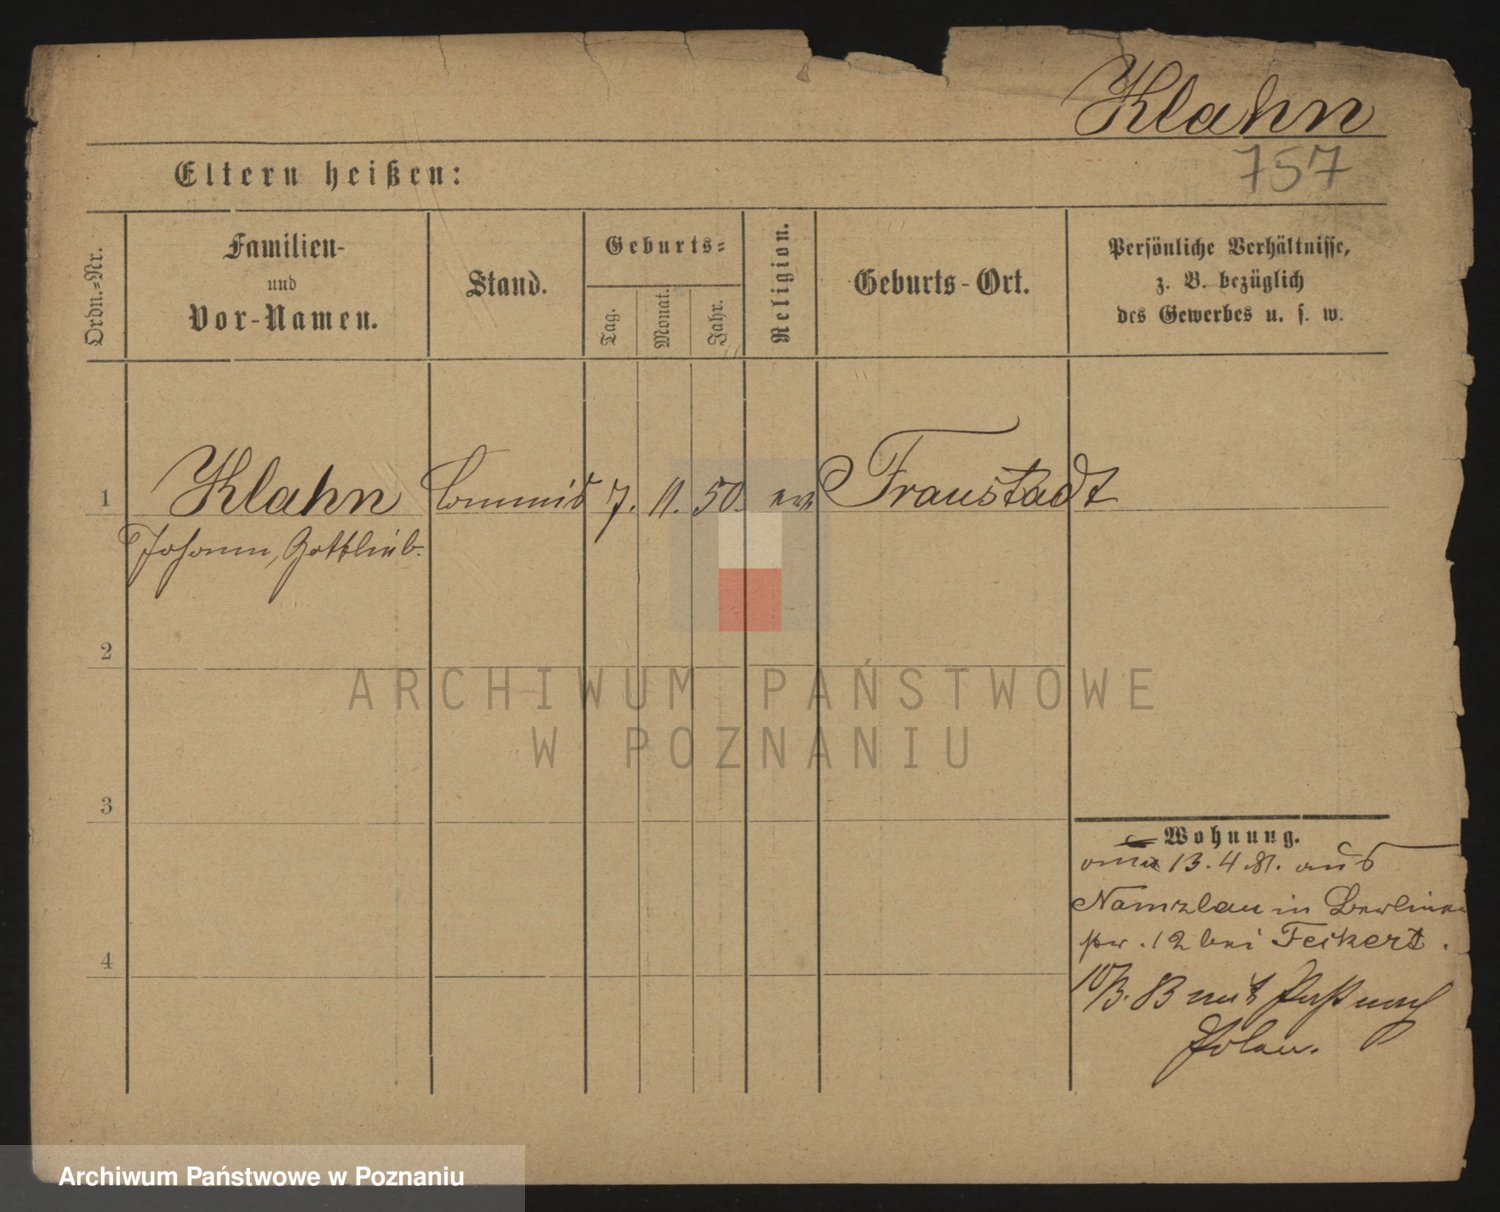 Klahn
757
Eltern heißen:
Ordn.-Nr.
Familien-
und
Vor-Namen.
Stand.
Geburts-
Tag.
Monat.
Jahr.
Religion.
Geburts-Ort.
Persönliche Verhältnisse,
z. B. bezüglich
des Gewerbes u. s. w.
1 Klahn Commis 7. 11. 50. ev Fraustadt
Johann, Gottlieb
2
3
4
Wohnung.
13.4.81. aus
Namzlau in Berliner
str. 12 bei Feikert.
10/3. 83 mit Paß nach
Polen.
ARCHIWUM PAŃSTWOWE
W POZNANIU
Archiwum Państwowe w Poznaniu